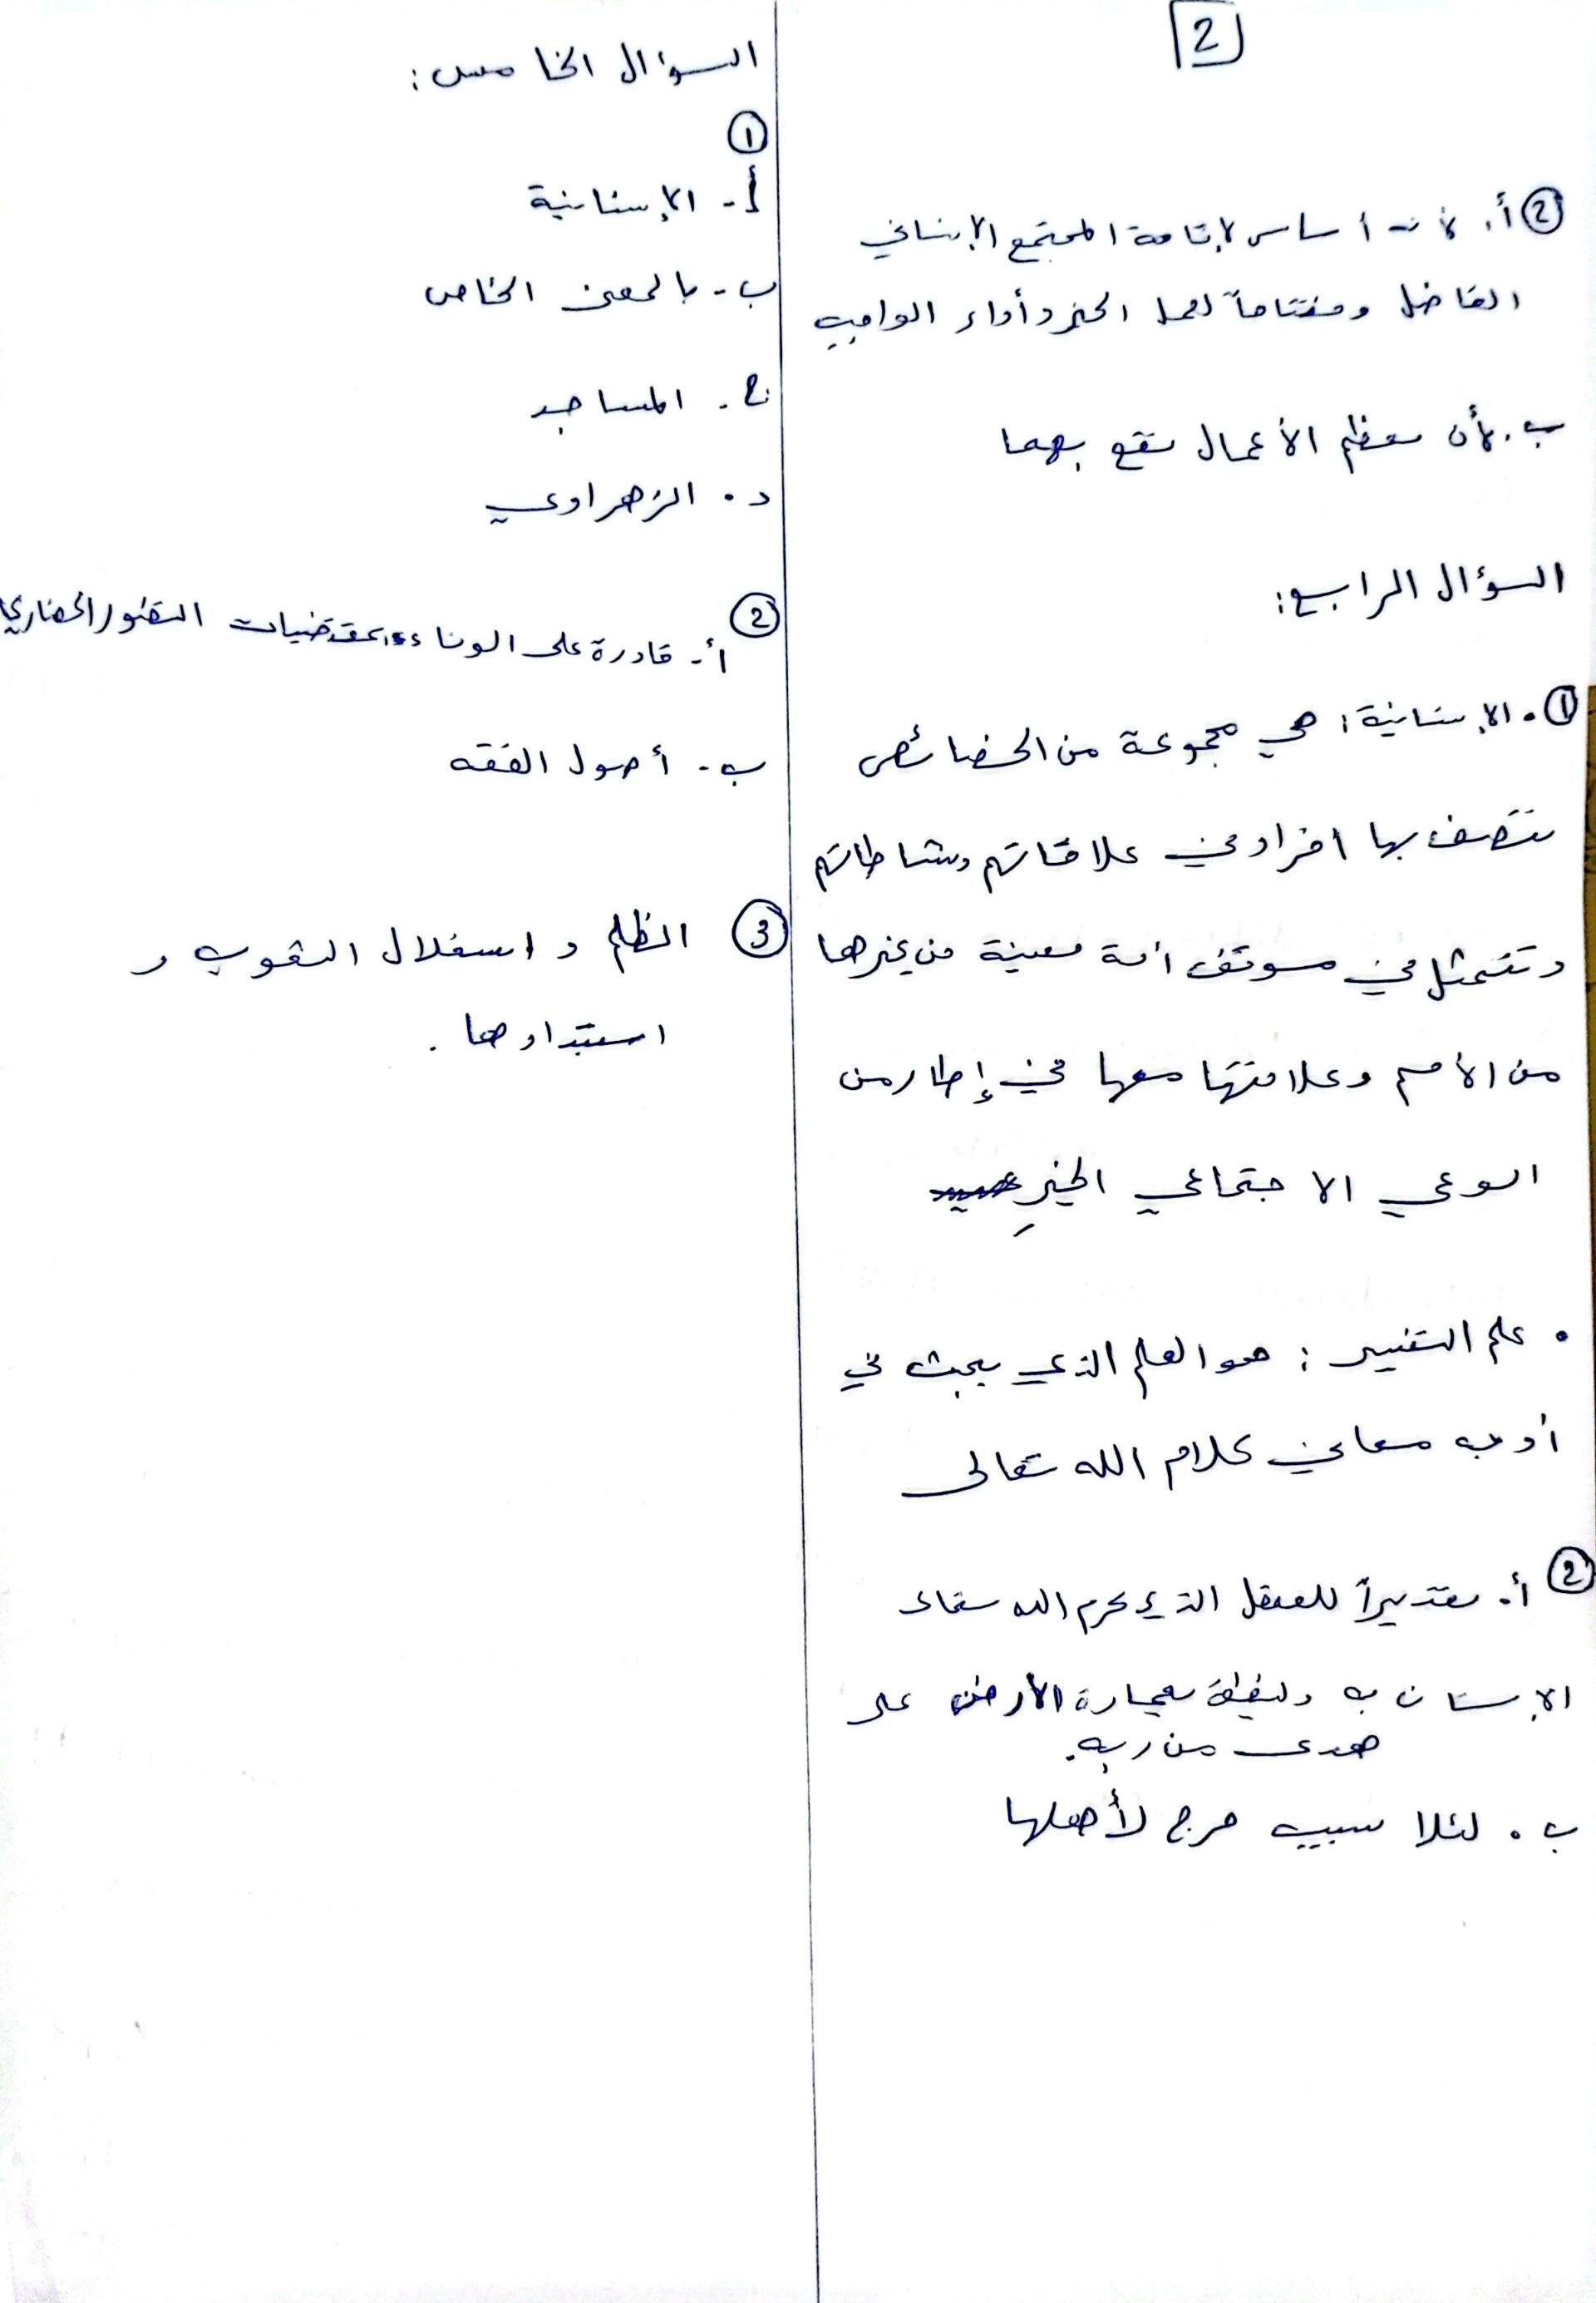 2
② أ. لأنه أساس لإقامة المجتمع الإنساني
الفاضل ومفتاحاً لعمل الخير وأداء الواجب
ب. لأن معظم الأعمال تقع بهما
السؤال الرابع:
① • الإنسانية: هي مجموعة من الخصائص
تتصف بها افراد في علاقاتهم ونشاطاتهم
وتتمثل في موقف أمة معينة من غيرها
من الأمم وعلاقتها معها في إطار من
الوعي الاجتماعي الخيِر
• علم التفسير: هو العلم الذي يبحث في
أوجه معاني كلام الله تعالى
② أ. تقديراً للعقل الذي كرم الله تعالى
الإنسان به وليقوم بعمارة الأرض على
هدى من ربه.
ب. لئلا سبب حرج لأهلها
السؤال الخامس:
①
أ- الإنسانية
ب- بالمعنى الخاص
ج. المساجد
د. الزهراوي
②
أ- قادرة على الوفاء بمقتضيات التطور الحضاري
ب- أصول الفقه
③ الظلم و استغلال الشعوب و
استبدادها.